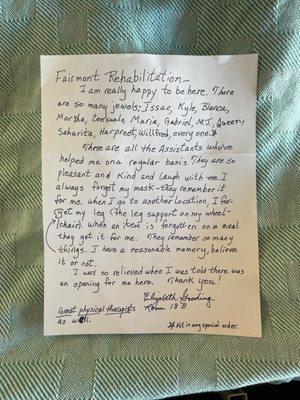 Fairmont Rehabilitation—
I am really happy to be here. There
are so many jewels: Issac, Kyle, Blanca,
Martha, Consuelo, Maria, Gabriel, M.J., Queeni,
Saharita, Harpreet, Willfred, every one.*
These are all the Assistants who've
helped me on a regular basis. They are so
pleasant and kind and laugh with me. I
always forget my mask—they remember it
for me. When I go to another location, I for-
get my leg (the leg support on my wheel-
chair). When an item is forgotten on a meal
they get it for me. They remember so many
things. I have a reasonable memory, believe
it or not.
I was so relieved when I was told there was
an opening for me here. Thank you!
Elizabeth
Room 18 B
Great physical therapists
as well.
*Not in any special order.